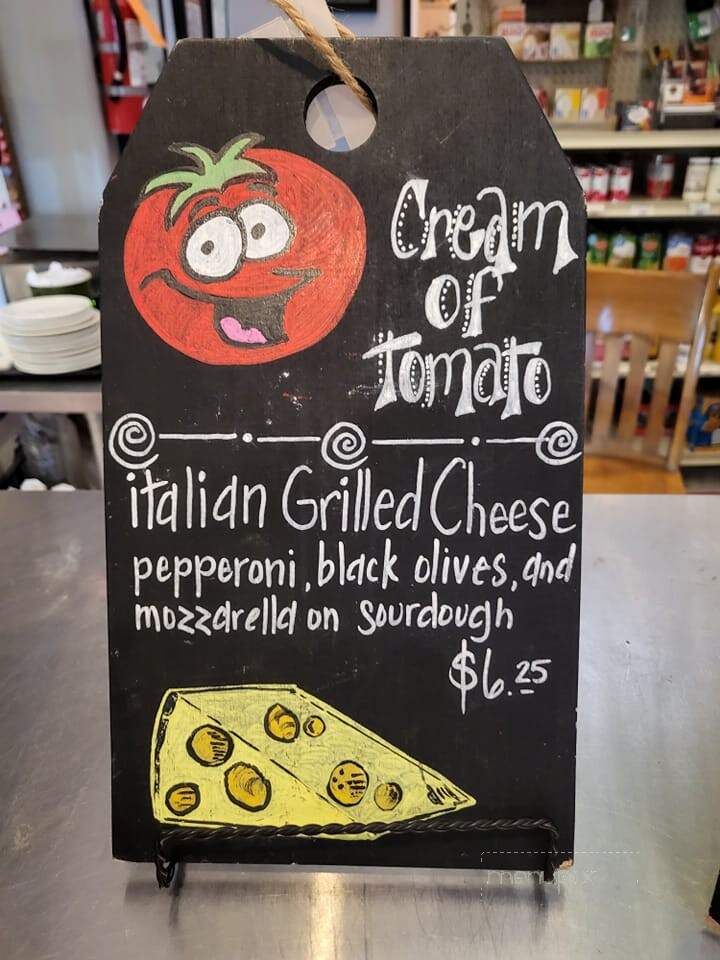 Cream
of
Tomato
italian Grilled Cheese
pepperoni, black olives, and
mozzarella on sourdough
$6.25